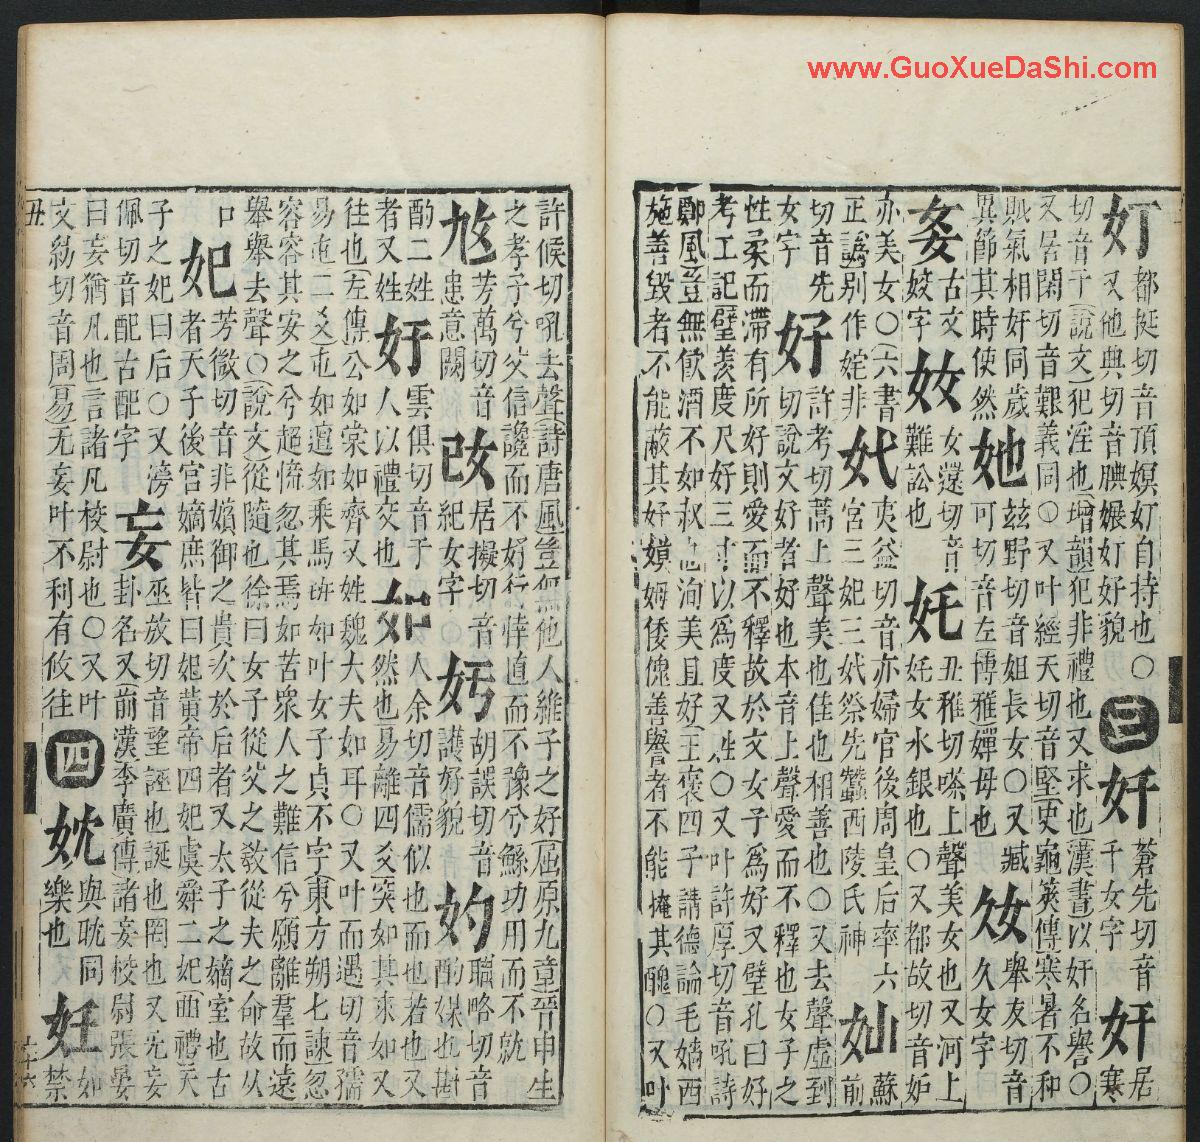 www.GuoXueDaShi.com
奵都挺切音頂嫇奵自持也○
又他典切音腆奵好貌三奷蒼先切音千女字奸居寒
切音干說文犯淫也增韻犯非禮也又求也漢書以奸名譽○
又居閑切音艱義同○又叶經天切音堅史龜筴傳寒暑不和
賊氣相奸同歲
異節其時使然她兹野切音姐長女○又臧可切音左博雅嬋母也㚫舉友切音久女字
古文妓字奻女還切音難訟也奼丑稚切嗏上聲美女也又河上奼女水銀也○又都故切音妬
亦美女○六書正譌別作姹非㚤夷益切音亦婦官後周皇后率六宮三妃三㚤祭先蠶西陵氏神奾蘇前
切音先女字好許考切蒿上聲美也佳也相善也○又去聲虛到切說文好者好也本音上聲愛而不釋也女子之
性柔而滯有所好則愛而不釋故於文女子爲好又璧孔曰好
考工記璧羨度尺好三寸以爲度又姓○又叶許厚切音吼詩
鄭風豈無飮酒不如叔也洵美且好王褒四子講德論毛嬙西
施善毀者不能蔽其好嫫姆倭傀善譽者不能掩其醜○又叶
許候切吼去聲詩唐風豈無他人維子之好屈原九章晉申生
之孝子兮父信讒而不好行婞直而不豫兮鯀功用而不就
芳萬切音患意闕改居擬切音紀女字胡誤切音護好貌妁職略切音酌媒也斟
酌二姓者又姓雲俱切音于人以禮交也如人余切音儒似也而也若也又然也易離四爻突如其來如又
往也左傳公如棠如齊又姓魏大夫如耳○又叶而遇切音孺
易屯二爻屯如邅如乘馬班如叶女子貞不字東方朔七諫忽
容容其安之兮超慌忽其焉如苦衆人之難信兮願離羣而遠
舉舉去聲○說文從隨也徐曰女子從父之敎從夫之命故从
口妃芳微切音非嬪御之貴次於后者又太子之嫡室也古者天子後宮嫡庶皆曰妃黃帝四妃虞舜二妃曲禮天
子之妃曰后○又滂佩切音配古配字妄巫放切音望誣也誕也罔也又无妄卦名又前漢李廣傳諸妄校尉張晏
曰妄猶凡也言諸凡校尉也○又叶
文紡切音周易无妄叶不利有攸往四妉與耽同樂也妊如禁
丑